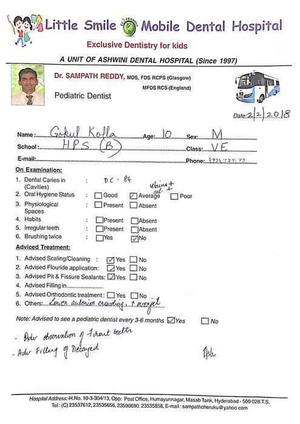 Little Smile Mobile Dental Hospital
Exclusive Dentistry for kids
A UNIT OF ASHWINI DENTAL HOSPITAL (Since 1997)
Dr. SAMPATH REDDY, MDS, FDS RCPS (Glasgow)
MFDS RCS (England)
Pediatric Dentist
Date: 2/2/2018
Name: Gokul Kolla Age: 10 Sex: M
School: HPS (B) Class: VE
E-mail: Phone:
On Examination:
1. Dental Caries in : DC -
(Cavities)
2. Oral Hygiene Status : Good Average Poor
3. Physiological : Present Absent
Spaces
4. Habits : Present Absent
5. Irregular teeth : Present Absent
6. Brushing twice : Yes No
Adviced Treatment:
1. Advised Scaling/Cleaning : Yes No
2. Advised Flouride application: Yes No
3. Advised Pit & Fissure Sealants: Yes No
4. Advised Filling in
5. Advised Orthodontic treatment : Yes No
6. Others: Lower anterior crowding,
Note: Advised to see a pediatric dentist every 3-6 months Yes No
- Adv observation of Front teeth
- Adv Filling of Decayed
Hospital Address: H.No. 10-3-304/13, Opp: Post Office, Humayunnagar, Masab Tank, Hyderabad - 500 028 T.S.
Tel: (C) 23537612, 23535656, 23590690, 23535858, E-mail: sampathcheruku@yahoo.com